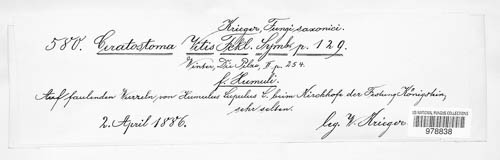 Krieger, Fungi saxonici.
580. Ceratostoma Vitis Fckl. Symb. p. 129.
Winter, Die Pilze, II p. 254.
f. Humuli.
Auf faulenden Wurzeln von Humulus Lupulus L. beim Kirchhofe der Festung Königstein,
sehr selten.
2. April 1886.
leg. W. Krieger.
US NATIONAL FUNGUS COLLECTIONS
978838